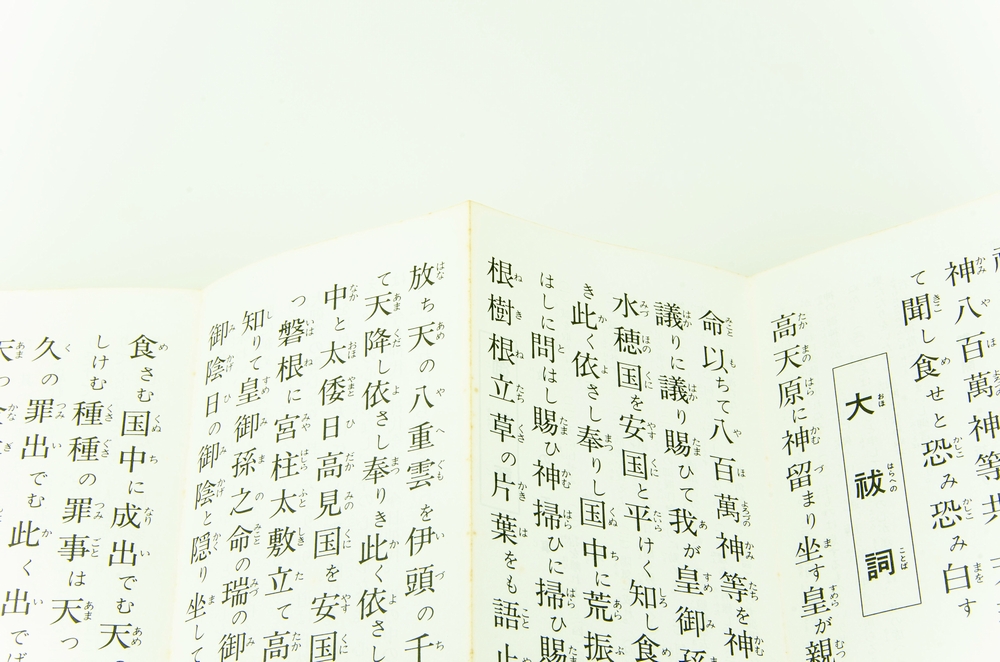 神八百萬神等共
て聞し食せと恐み恐み白す
大祓詞
高天原に神留まり坐す皇が親
命以ちて八百萬神等を神
議りに議り賜ひて我が皇御孫
水穂国を安国と平けく知し食
き此く依さし奉りし国中に荒振
はしに問はし賜ひ神掃ひに掃ひ賜
根樹根立草の片葉をも語止
放ち天の八重雲を伊頭の千
て天降し依さし奉りき此く依さし
中と太倭日高見国を安国
つ磐根に宮柱太敷立て高
知りて皇御孫之命の瑞の御
御陰日の御陰と隠り坐して
食さむ国中に成出でむ天
しけむ種種の罪事は天つ
久の罪出でむ此く出でば
天つ